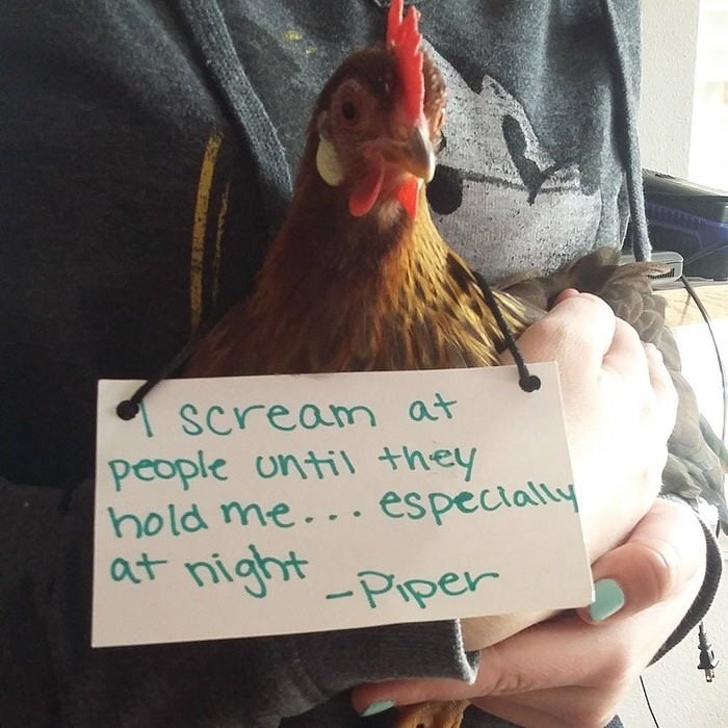 I scream at
people until they
hold me... especially
at night
-Piper